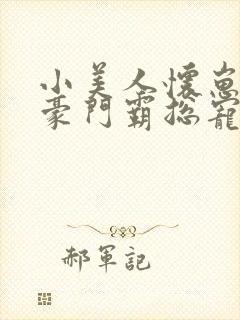 小美人懷崽
豪門霸總寵
郝軍記